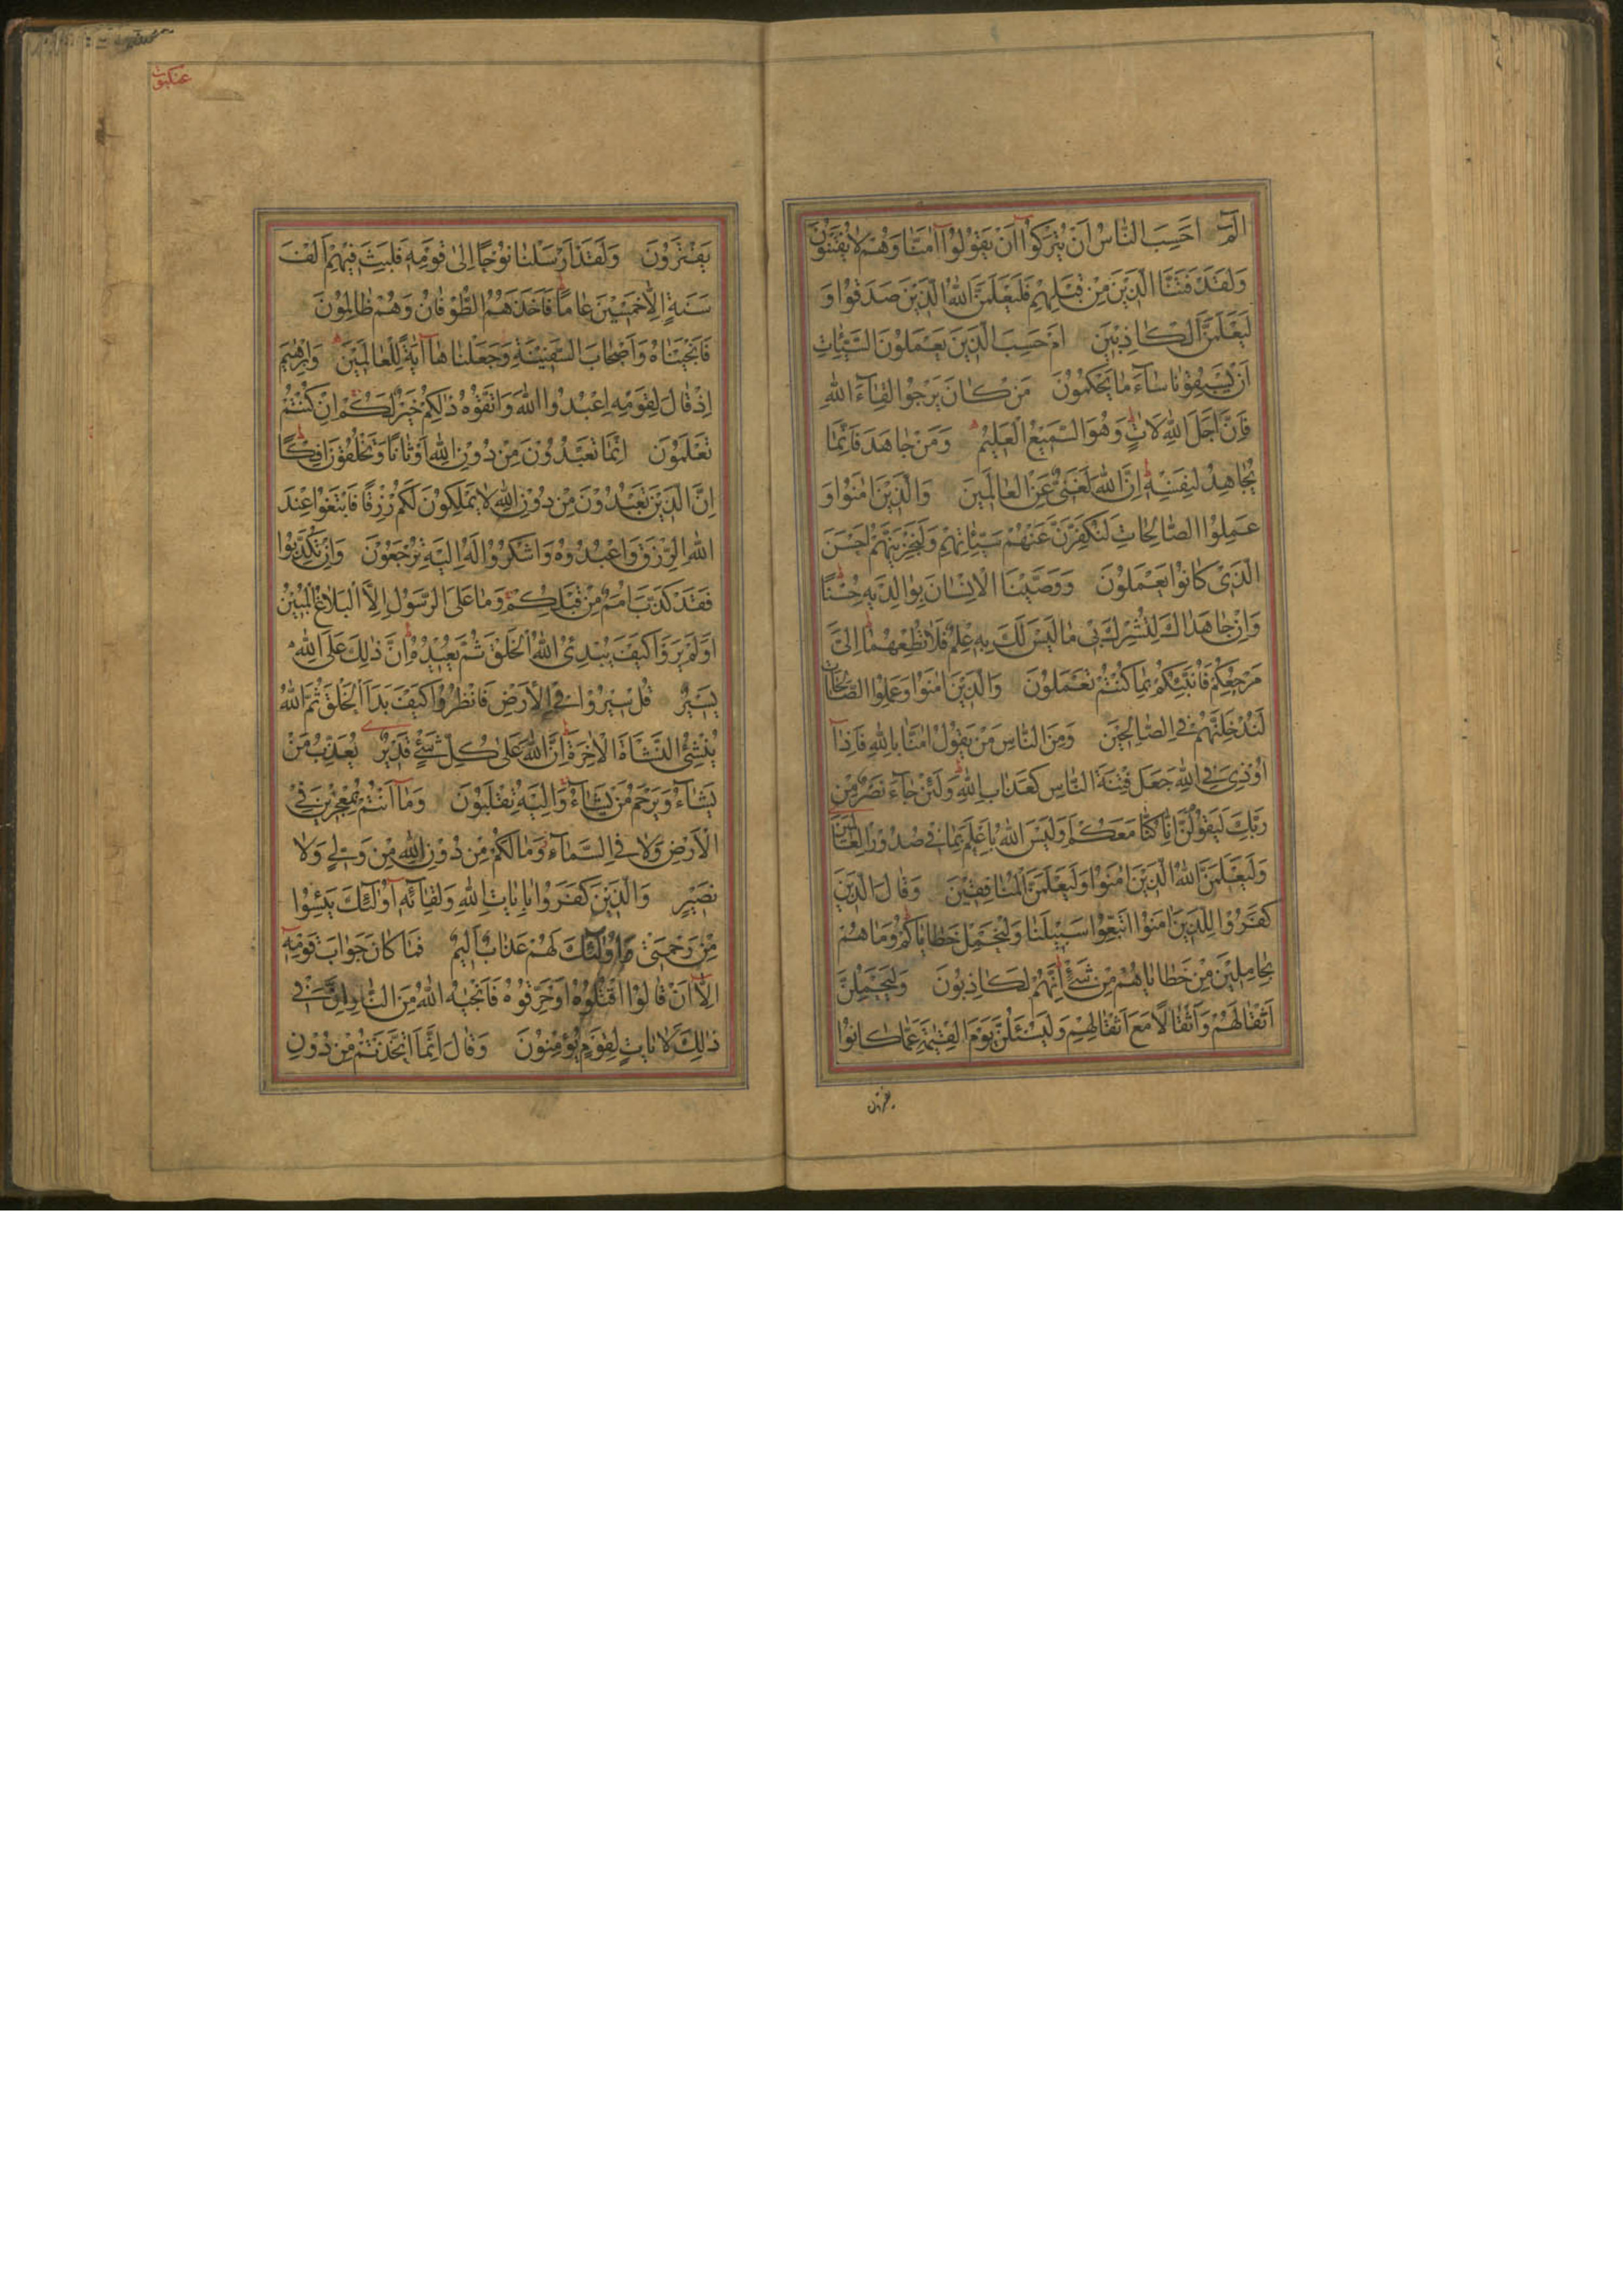 الٓمٓ اَحَسِبَ النَّاسُ اَنْ يُتْرَكُوْٓا اَنْ يَقُوْلُوْٓا اٰمَنَّا وَهُمْ لَا يُفْتَنُوْنَ
وَلَقَدْ فَتَنَّا الَّذِيْنَ مِنْ قَبْلِهِمْ فَلَيَعْلَمَنَّ اللّٰهُ الَّذِيْنَ صَدَقُوْا وَ
لَيَعْلَمَنَّ الْكَاذِبِيْنَ اَمْ حَسِبَ الَّذِيْنَ يَعْمَلُوْنَ السَّيِّئَاتِ
اَنْ يَسْبِقُوْنَا سَآءَ مَا يَحْكُمُوْنَ مَنْ كَانَ يَرْجُوْا لِقَآءَ اللّٰهِ
فَاِنَّ اَجَلَ اللّٰهِ لَاٰتٍ وَهُوَ السَّمِيْعُ الْعَلِيْمُ وَمَنْ جَاهَدَ فَاِنَّمَا
يُجَاهِدُ لِنَفْسِهٖ اِنَّ اللّٰهَ لَغَنِيٌّ عَنِ الْعَالَمِيْنَ وَالَّذِيْنَ اٰمَنُوْا وَ
عَمِلُوا الصَّالِحَاتِ لَنُكَفِّرَنَّ عَنْهُمْ سَيِّئَاتِهِمْ وَلَنَجْزِيَنَّهُمْ اَحْسَنَ
الَّذِيْ كَانُوْا يَعْمَلُوْنَ وَوَصَّيْنَا الْاِنْسَانَ بِوَالِدَيْهِ حُسْنًا
وَاِنْ جَاهَدَاكَ لِتُشْرِكَ بِيْ مَا لَيْسَ لَكَ بِهٖ عِلْمٌ فَلَا تُطِعْهُمَا اِلَيَّ
مَرْجِعُكُمْ فَاُنَبِّئُكُمْ بِمَا كُنْتُمْ تَعْمَلُوْنَ وَالَّذِيْنَ اٰمَنُوْا وَعَمِلُوا الصَّالِحَاتِ
لَنُدْخِلَنَّهُمْ فِي الصَّالِحِيْنَ وَمِنَ النَّاسِ مَنْ يَقُوْلُ اٰمَنَّا بِاللّٰهِ فَاِذَآ
اُوْذِيَ فِي اللّٰهِ جَعَلَ فِتْنَةَ النَّاسِ كَعَذَابِ اللّٰهِ وَلَئِنْ جَآءَ نَصْرٌ مِنْ
رَبِّكَ لَيَقُوْلُنَّ اِنَّا كُنَّا مَعَكُمْ اَوَلَيْسَ اللّٰهُ بِاَعْلَمَ بِمَا فِيْ صُدُوْرِ الْعَالَمِيْنَ
وَلَيَعْلَمَنَّ اللّٰهُ الَّذِيْنَ اٰمَنُوْا وَلَيَعْلَمَنَّ الْمُنَافِقِيْنَ وَقَالَ الَّذِيْنَ
كَفَرُوْا لِلَّذِيْنَ اٰمَنُوْا اتَّبِعُوْا سَبِيْلَنَا وَلْنَحْمِلْ خَطَايَاكُمْ وَمَا هُمْ
بِحَامِلِيْنَ مِنْ خَطَايَاهُمْ مِنْ شَيْءٍ اِنَّهُمْ لَكَاذِبُوْنَ وَلَيَحْمِلُنَّ
اَثْقَالَهُمْ وَاَثْقَالًا مَعَ اَثْقَالِهِمْ وَلَيُسْئَلُنَّ يَوْمَ الْقِيٰمَةِ عَمَّا كَانُوْا
يفترون
عنكبوت
يَفْتَرُوْنَ وَلَقَدْ اَرْسَلْنَا نُوْحًا اِلٰى قَوْمِهٖ فَلَبِثَ فِيْهِمْ اَلْفَ
سَنَةٍ اِلَّا خَمْسِيْنَ عَامًا فَاَخَذَهُمُ الطُّوْفَانُ وَهُمْ ظَالِمُوْنَ
فَاَنْجَيْنَاهُ وَاَصْحَابَ السَّفِيْنَةِ وَجَعَلْنَاهَآ اٰيَةً لِلْعَالَمِيْنَ وَاِبْرٰهِيْمَ
اِذْ قَالَ لِقَوْمِهِ اعْبُدُوا اللّٰهَ وَاتَّقُوْهُ ذٰلِكُمْ خَيْرٌ لَكُمْ اِنْ كُنْتُمْ
تَعْلَمُوْنَ اِنَّمَا تَعْبُدُوْنَ مِنْ دُوْنِ اللّٰهِ اَوْثَانًا وَتَخْلُقُوْنَ اِفْكًا
اِنَّ الَّذِيْنَ تَعْبُدُوْنَ مِنْ دُوْنِ اللّٰهِ لَا يَمْلِكُوْنَ لَكُمْ رِزْقًا فَابْتَغُوْا عِنْدَ
اللّٰهِ الرِّزْقَ وَاعْبُدُوْهُ وَاشْكُرُوْا لَهٗ اِلَيْهِ تُرْجَعُوْنَ وَاِنْ تُكَذِّبُوْا
فَقَدْ كَذَّبَ اُمَمٌ مِنْ قَبْلِكُمْ وَمَا عَلَى الرَّسُوْلِ اِلَّا الْبَلَاغُ الْمُبِيْنُ
اَوَلَمْ يَرَوْا كَيْفَ يُبْدِئُ اللّٰهُ الْخَلْقَ ثُمَّ يُعِيْدُهٗ اِنَّ ذٰلِكَ عَلَى اللّٰهِ
يَسِيْرٌ قُلْ سِيْرُوْا فِي الْاَرْضِ فَانْظُرُوْا كَيْفَ بَدَاَ الْخَلْقَ ثُمَّ اللّٰهُ
يُنْشِئُ النَّشْاَةَ الْاٰخِرَةَ اِنَّ اللّٰهَ عَلٰى كُلِّ شَيْءٍ قَدِيْرٌ يُعَذِّبُ مَنْ
يَشَآءُ وَيَرْحَمُ مَنْ يَشَآءُ وَاِلَيْهِ تُقْلَبُوْنَ وَمَآ اَنْتُمْ بِمُعْجِزِيْنَ فِي
الْاَرْضِ وَلَا فِي السَّمَآءِ وَمَا لَكُمْ مِنْ دُوْنِ اللّٰهِ مِنْ وَلِيٍّ وَلَا
نَصِيْرٍ وَالَّذِيْنَ كَفَرُوْا بِاٰيَاتِ اللّٰهِ وَلِقَآئِهٖٓ اُولٰٓئِكَ يَئِسُوْا
مِنْ رَحْمَتِيْ وَاُولٰٓئِكَ لَهُمْ عَذَابٌ اَلِيْمٌ فَمَا كَانَ جَوَابَ قَوْمِهٖٓ
اِلَّآ اَنْ قَالُوْا اقْتُلُوْهُ اَوْ حَرِّقُوْهُ فَاَنْجٰىهُ اللّٰهُ مِنَ النَّارِ اِنَّ فِيْ
ذٰلِكَ لَاٰيَاتٍ لِقَوْمٍ يُؤْمِنُوْنَ وَقَالَ اِنَّمَا اتَّخَذْتُمْ مِنْ دُوْنِ